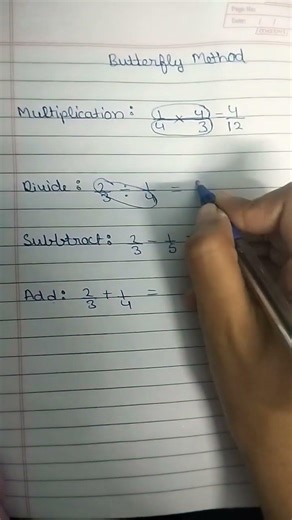 Page No.
Date: / /
Butterfly Method
Multiplication: 1/4 × 4/3 = 4/12
Divide: 2/3 ÷ 1/4 =
Subtract: 2/3 - 1/5
Add: 2/3 + 1/4 =